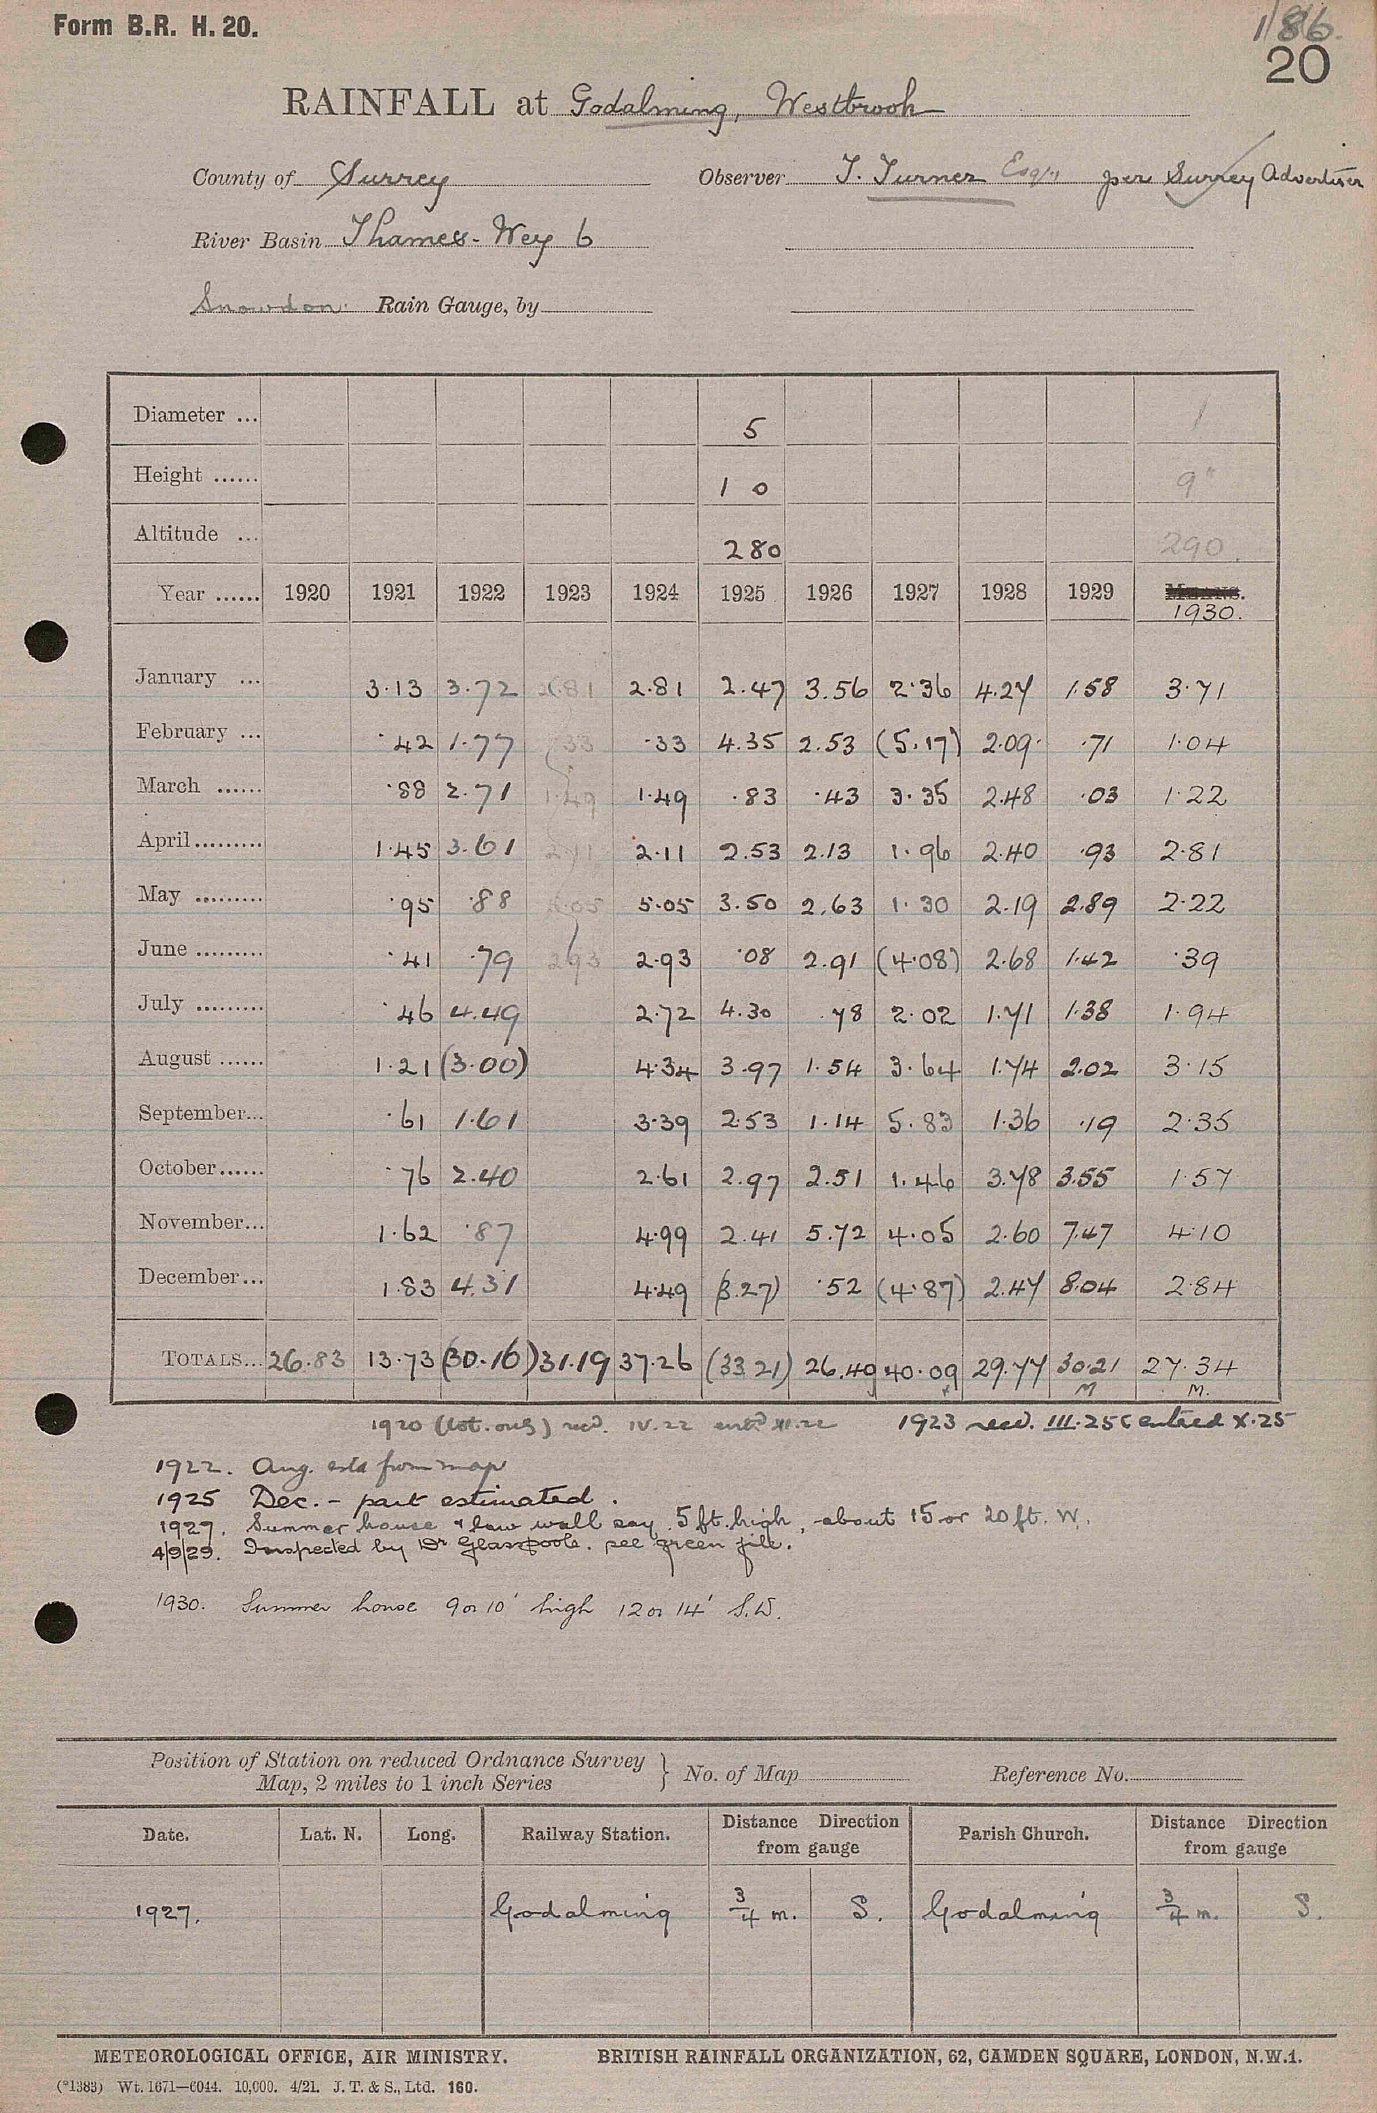 Form B.R. H. 20.
186.
20
RAINFALL at Godalming, Westbrook
County of Surrey Observer T. Turner Esqre per Surrey Advertiser
River Basin Thames - Wey 6
Snowdon Rain Gauge, by
Diameter ... 5 1
Height ...... 1 0 9"
Altitude ... 280 290.
Year ...... 1920 1921 1922 1923 1924 1925 1926 1927 1928 1929 Means. 1930.
January ... 3.13 3.72 2.81 2.81 2.47 3.56 2.36 4.27 1.58 3.71
February ... .42 1.77 .33 .33 4.35 2.53 (5.17) 2.09 .71 1.04
March ...... .88 2.71 1.49 1.49 .83 .43 3.35 2.48 .03 1.22
April ......... 1.45 3.61 2.11 2.11 2.53 2.13 1.96 2.40 .93 2.81
May ......... .95 .88 5.05 5.05 3.50 2.63 1.30 2.19 2.89 2.22
June ......... .41 .79 2.93 2.93 .08 2.91 (4.08) 2.68 1.42 .39
July ......... .46 4.49 2.72 4.30 .78 2.02 1.71 1.38 1.94
August ...... 1.21 (3.00) 4.34 3.97 1.54 3.64 1.74 2.02 3.15
September... .61 1.61 3.39 2.53 1.14 5.83 1.36 .19 2.35
October...... .76 2.40 2.61 2.97 2.51 1.46 3.78 3.55 1.57
November... 1.62 .87 4.99 2.41 5.72 4.05 2.60 7.47 4.10
December... 1.83 4.31 4.49 (3.27) .52 (4.87) 2.47 8.04 2.84
TOTALS... 26.83 13.73 (30.16) 31.19 37.26 (33.21) 26.40 40.09 29.77 30.21 27.34
M M.
1920 (tot. only) recd. IV.22 entd XI.22 1923 recd. III.25 & entred X.25
1922. Aug. estd from map
1925 Dec. - part estimated.
1927. Summer house & low wall say 5 ft. high, about 15 or 20 ft. W.
4/9/29. Inspected by Dr Glasspoole. see green file.
1930. Summer house 9 or 10' high 12 or 14' S.W.
Position of Station on reduced Ordnance Survey
Map, 2 miles to 1 inch Series } No. of Map Reference No.
Date. Lat. N. Long. Railway Station. Distance Direction from gauge Parish Church. Distance Direction from gauge
1927. Godalming 3/4 m. S. Godalming 3/4 m. S.
METEOROLOGICAL OFFICE, AIR MINISTRY. BRITISH RAINFALL ORGANIZATION, 62, CAMDEN SQUARE, LONDON, N.W.1.
(*1383) Wt. 1671—6044. 10,000. 4/21. J. T. & S., Ltd. 160.